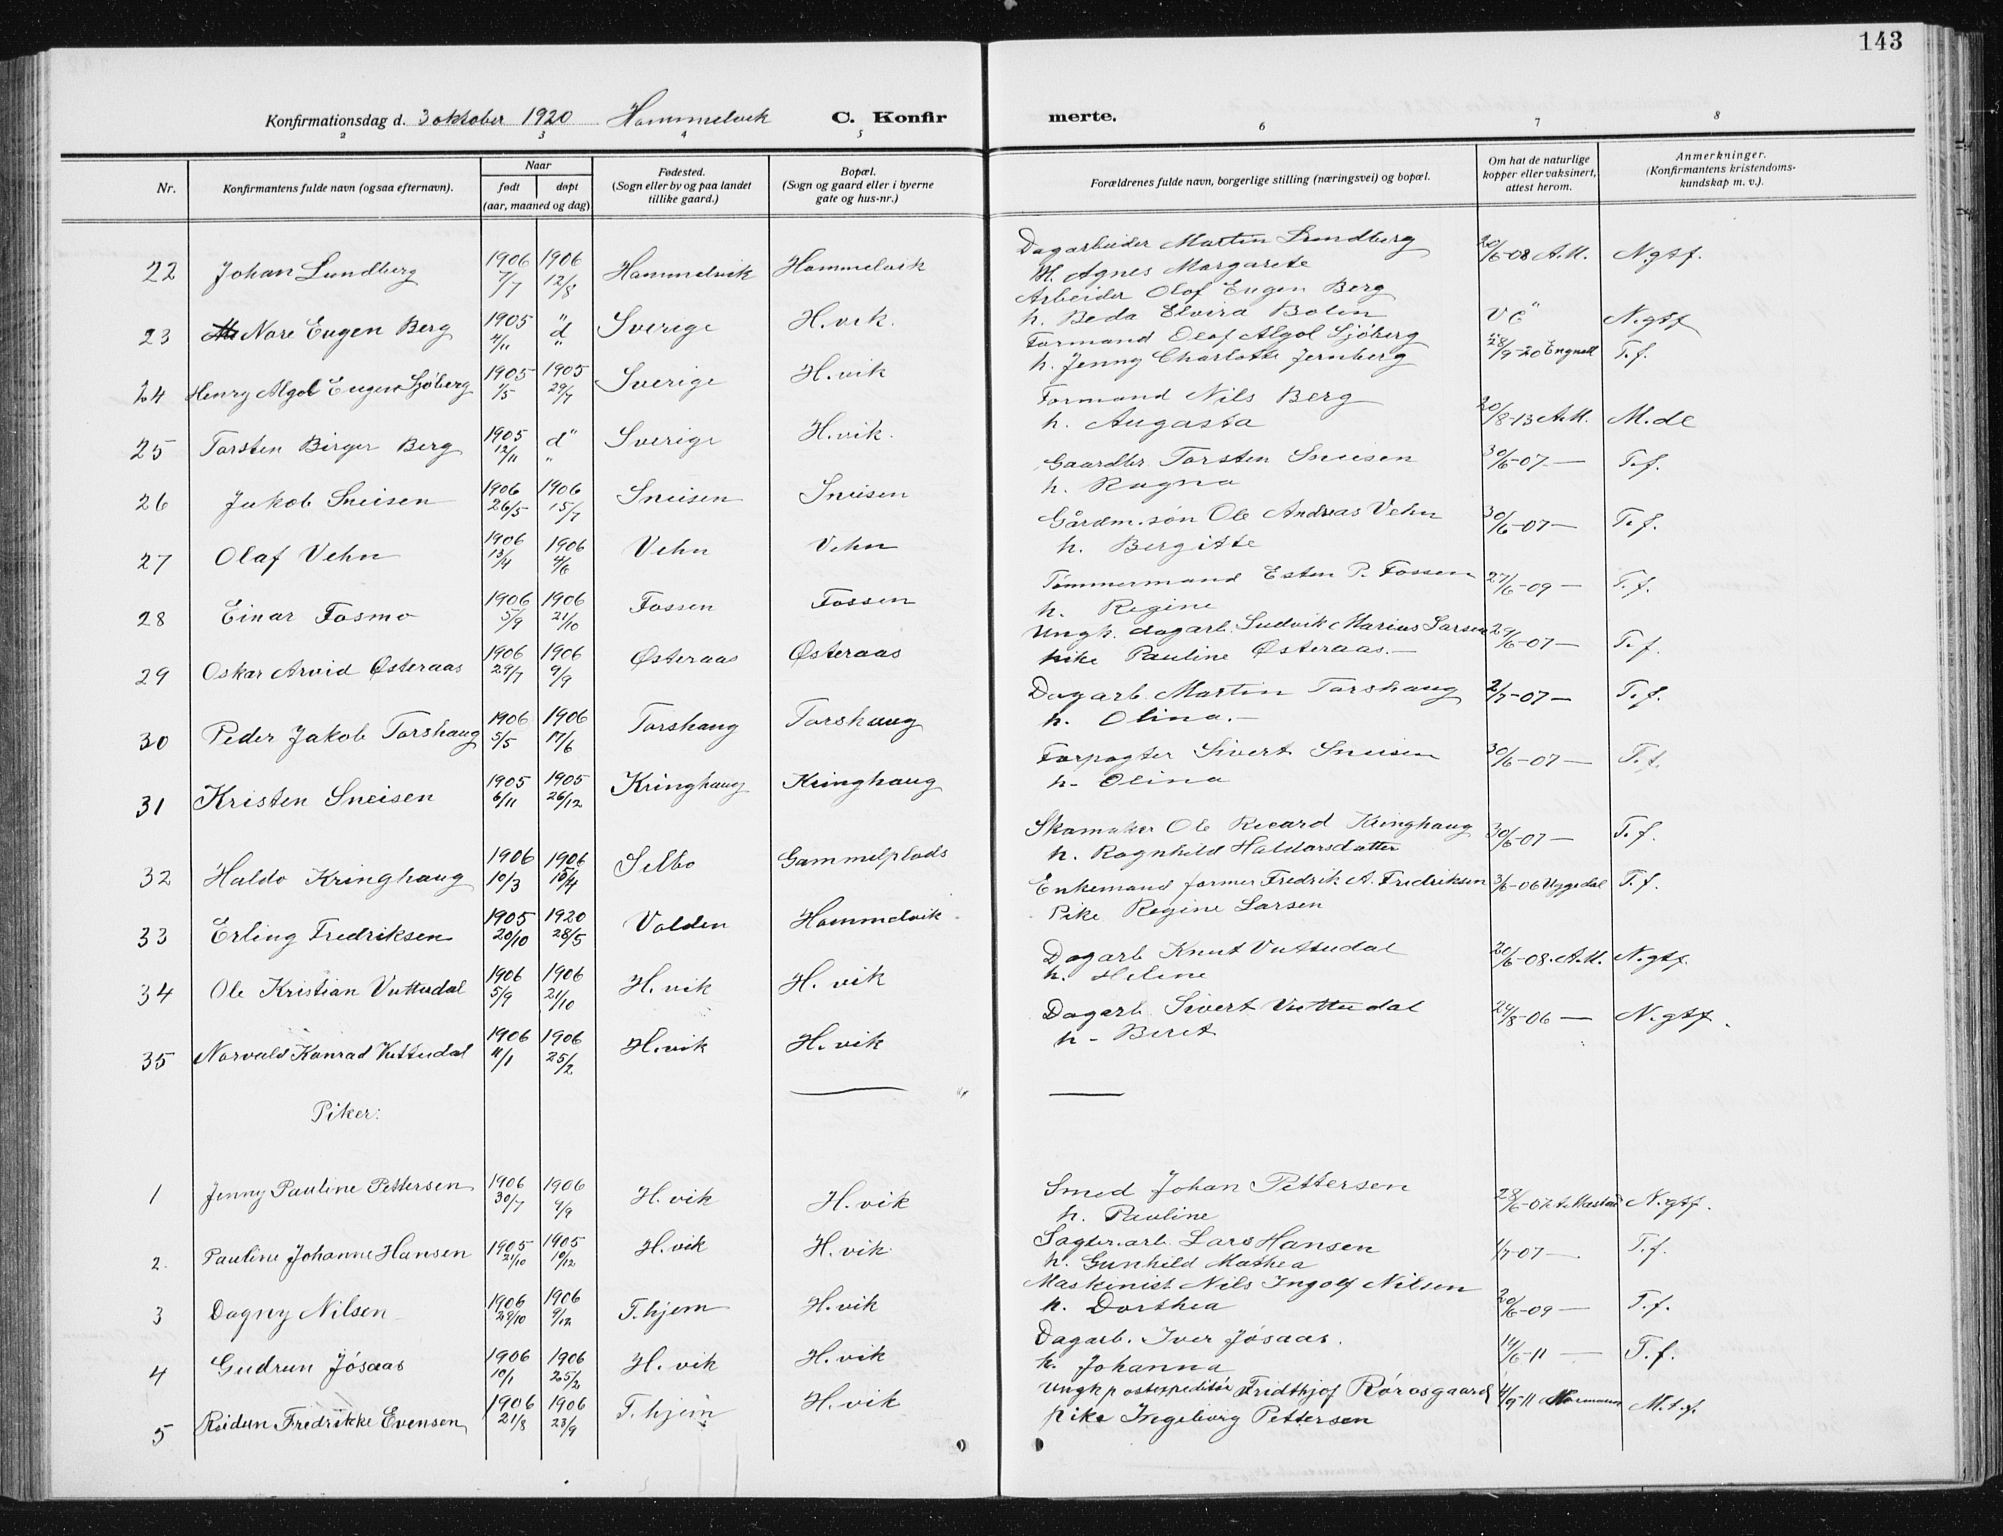 143
Konfirmationsdag d. 3 oktober 1920 Hommelvik C. Konfirmerte.
2 3 4 5 6 7 8
Nr. Konfirmantens fulde navn (ogsaa efternavn). Naar født døpt (aar, maaned og dag) Fødested. (Sogn eller by og paa landet tillike gaard.) Bopæl. (Sogn og gaard eller i byerne gate og hus-nr.) Forældrenes fulde navn, borgerlige stilling (næringsvei) og bopæl. Om hat de naturlige kopper eller vaksinert, attest herom. Anmerkninger. (Konfirmantens kristendomskundskap m. v.).
22 Johan Lundberg 1906 7/7 1906 12/8 Hommelvik Hommelvik Dagarbeider Martin Lundberg 20/6-08 A.M. N.gtf.
H. Agnes Margarete
23 Nore Eugen Berg 1905 4/11 " d " Sverige H.vik. Arbeider Olof Eugen Berg N.gtf
h. Beda Elvira Bolin
24 Henry Algot Eugen Sjøberg 1905 1/5 1905 29/7 Sverige H.vik Formand Olof Algot Sjøberg 28/9-20 Engnell T.f.
h. Jenny Charlotte Jernberg
25 Torsten Birger Berg 1905 12/11 d " " Sverige H.vik. Formand Nils Berg 20/8-13 A.M. M.de
h. Augasta
26 Jakob Sneisen 1906 26/5 1906 15/7 Sneisen Sneisen Gaardbr. Torsten Sneisen 30/6-07 — T.f.
h. Ragna
27 Olaf Vehn 1906 13/4 1906 4/6 Vehn Vehn Gårdm.søn Ole Andreas Vehn 30/6-07 — T.f.
h. Bergitte
28 Einar Fosmo 1906 5/9 1906 21/10 Fossen Fossen Tømmermand Esten P. Fossen 27/6-09 — T.f.
h. Regine
29 Oskar Arvid Østeraas 1906 29/7 1906 9/9 Østeraas Østeraas Ungk. dagarb. Ludvik Marius Larsen 29/6-07 — T.f.
pike Pauline Østeraas. —
30 Peder Jakob Torshaug 1906 5/5 1906 17/6 Torshaug Torshaug Dagarb. Martin Torshaug 2/7-07 — T.f.
h. Olina. —
31 Kristen Sneisen 1905 6/11 1905 26/12 Kringhaug Kringhaug Forpagter Sivert Sneisen 30/6-07 — T.f.
h- Olina
32 Haldo Kringhaug 1906 10/3 1906 15/4 Selbo Gammelplads Skomaker Ole Ricard Kringhaug 30/6-07 — T.f.
h. Ragnhild Haldorsdatter
33 Erling Fredriksen 1905 20/10 1920 28/5 Volden Hommelvik Enkemand former Fredrik A. Fredriksen 3/6-06 T.f.
Pike Regine Larsen
34 Ole Kristian Vuttudal 1906 5/9 1906 21/10 H.vik H.vik Dagarb Knut Vuttudal 20/6-08. A.M. N.gtf.
h. Heline
35 Norvald Konrad Vuttudal 1906 4/1 1906 25/2 H.vik H.vik Dagarb Sivert Vuttudal 24/8-06 — N.gtf.
h - Beret
Piker:
1 Jenny Pauline Pettersen 1906 30/7 1906 9/9 H.vik H.vik Smed Johan Pettersen 28/6-07 N.gtf.
h. Pauline
2. Pauline Johanne Hansen 1905 21/10 1905 10/12 H.vik H.vik Sagterarb. Lars Hansen 1/7-07 — T.f.
h. Gunhild Mathea
3 Dagny Nilsen 1906 29/10 1906 9/12 T.hjem H.vik Maskinist Nils Ingolf Nilsen 20/6-09 — T.f.
h. Dorthea
4 Gudrun Jøsaas 1906 10/1 1906 25/2 H.vik H.vik Dagarb. Iver Jøsaas. 14/6-11 — T.f.
h. Johanna
5 Reidun Fredrikke Evensen 1906 21/8 1906 23/9 T.hjem H.vik Ungk postexpeditør Fridthjof Rørosgaard 4/9-11 M.t.f.
pike Ingeborg Pettersen